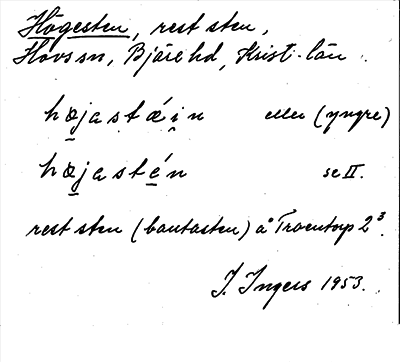 Högesten, rest sten,
Hovs sn, Bjäre hd, Krist. län.
hæ̱jastǽi̱n eller (yngre)
hæ̱jasté̱n se II.
rest sten (bautasten) å Troentorp 2³.
I. Ingers 1953.